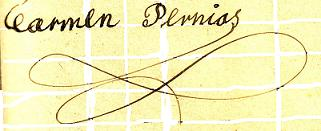 Carmen Pernias